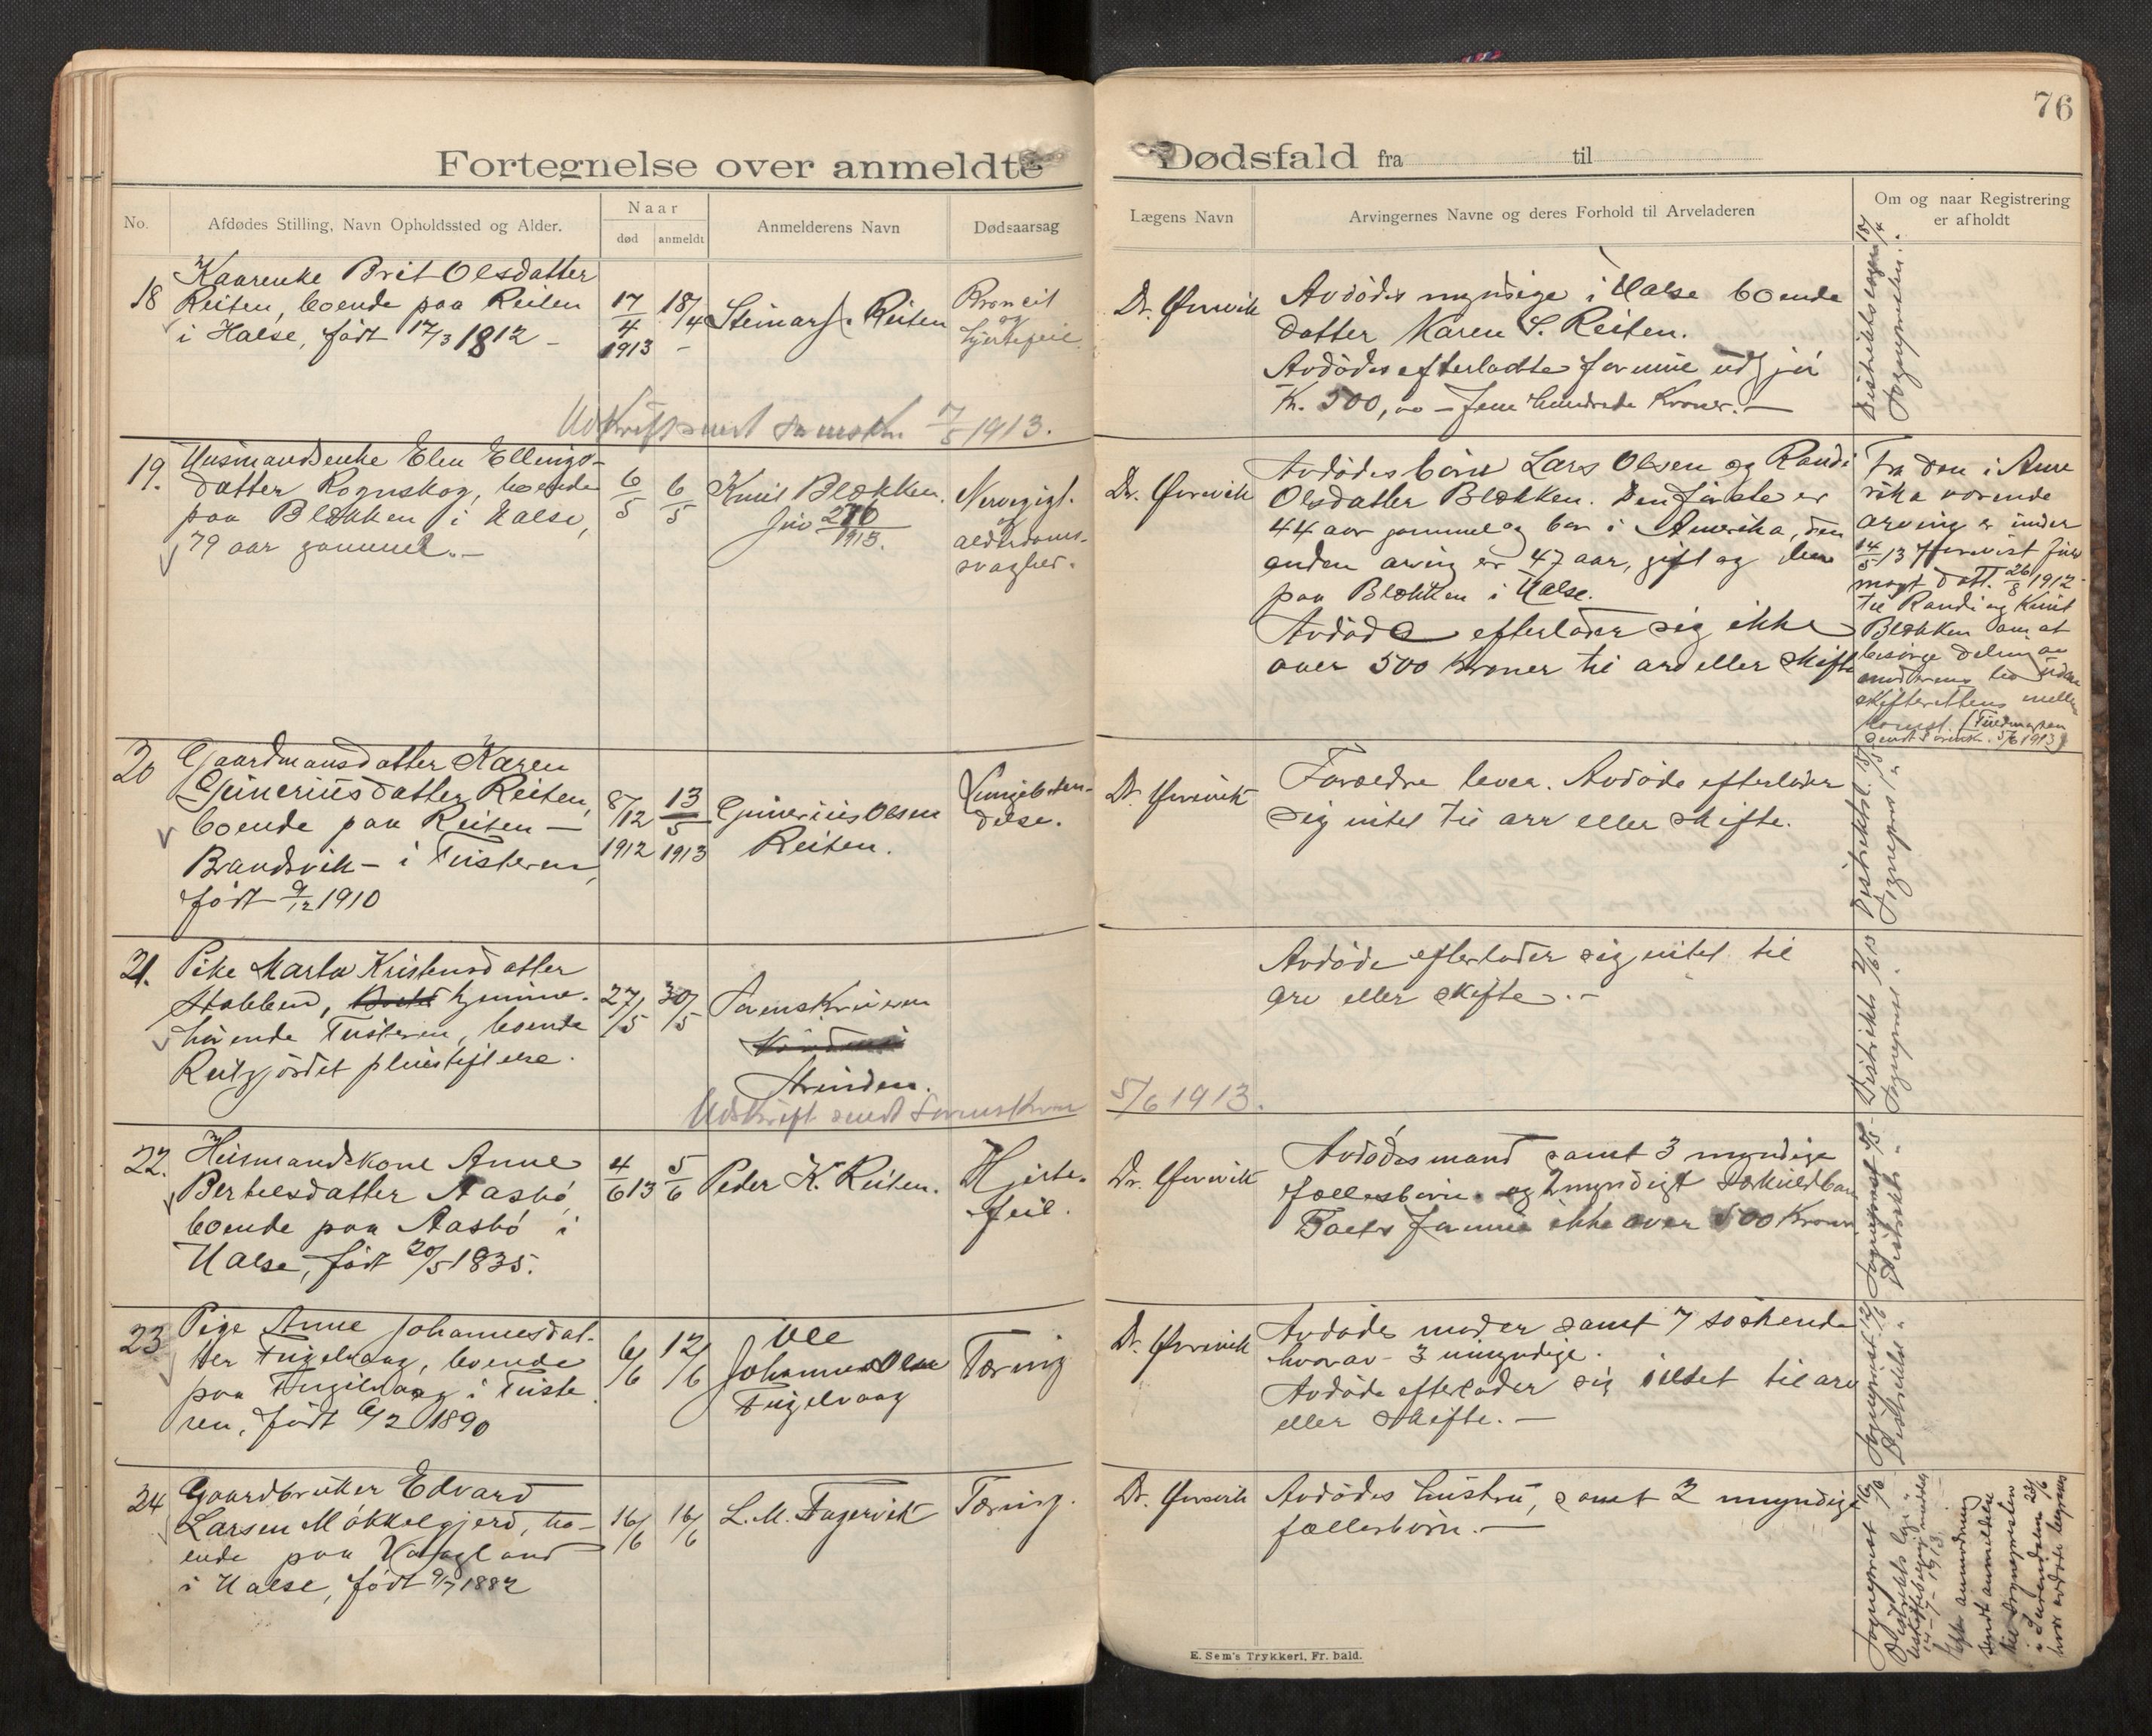 76
Fortegnelse over anmeldte Dødsfald fra til
No.
Afdødes Stilling, Navn Opholdssted og Alder.
Naar
død
anmeldt
Anmelderens Navn
Dødsaarsag
Lægens Navn
Arvingernes Navne og deres Forhold til Arveladeren
Om og naar Registrering
er afholdt
18
Kaarenke Brit Olsdatter
Reiten, boende paa Reiten
i Halse, født 17/3 1812 -
17/4 1913
18/4 -
Steinar J. Reiten
og
Hjertefeil
Dr. Ørsvik
Avdødes myndige i Halse boende
datter Karen S. Reiten.
Avdødes efterladte formue udgjør
Kr. 500,00 - fem hundrede Kroner. -
Distriktslægen 18/4
Sognepresten "
Udskrift sendt 7/5 1913.
19.
Husmandsenke Elen Ellings-
datter Rognskog, boende
paa Blekken i Halse,
79 aar gammel. -
6/5
6/5
Knut Blekken.
1913.
Nervegigt.
og
alderdoms-
svaghed.
Dr. Ørsvik
Avdødes børn Lars Olsen og Randi
Olsdatter Blekken. Den første er
44 aar gammel og bor i Amerika, den
anden arving er 47 aar, gift og bor
paa Blekken i Halse.
Avdøde efterlader sig ikke
over 500 kroner til arv eller skifte
Fra den i Ame
rika værende
arving er under
14/5 13 forevist full
magt dat. 26/8 1912
til Randi og Knut
Blekken om at
besørge delingen av
moderens bo uden
skifterettens mellem
komst. (Fuldmagten
sendt 5/6 1913)
20
Gaardmansdatter Karen
Guneriusdatter Reiten,
boende paa Reiten -
Brandsvik - i Tusteren,
født 9/12 1910
8/12 1912
13/5 1913
Gunerius Olsen
Reiten.
Lungebeten-
delse.
Dr. Ørsvik
Forældre lever. Avdøde efterlader
sig intet til arv eller skifte.
Sogneprest "
21.
Pike Marta Kristensdatter
Stabben, hjemme-
hørende Tusteren, boende
Reitgjerdet pleiestiftelse.
27/5
30/5
Strinden.
Avdøde efterlader sig intet til
arv eller skifte. -
Sogneprest "
Udskrift sendt 5/6 1913.
22.
Husmandskone Anne
Bertelsdatter Aasbø
boende paa Aasbø i
Halse, født 20/5 1835.
4/6 13
5/6
Peder K. Reiten.
Hjerte-
feil.
Dr. Ørsvik
Avdødes mand samt 3 myndige
fællesbørn og 2 myndigt særkuldbarn
Boets formue ikke over 500 Kroner
Distriktsl. "
23
Pige Anne Johannesdat-
ter Fugelvaag, boende
paa Fugelvaag i Tuste
ren, født 6/2 1890
6/6
12/6
Ole
Johannes Olsen
Fugelvaag
Tæring
Dr. Ørsvik
Avdødes moder samt 7 søskende
hvorav 3 umyndige.
Avdøde efterlader sig intet til arv
eller skifte. -
Sogneprest 12/6
Distriktsl. "
24
Gaardbruker Edvard
Larsen Møkkelgjerd, bo-
ende paa Vaagland
i Halse, født 9/7 1882
16/6
16/6
L. M. Fagervik
Tæring.
Dr. Ørsvik
Avdødes hustru, samt 2 umyndige
fællesbørn. -
Sogneprest 16/6
14-7-1913
Efter anmodning
sendt anmeldelse
til Sognepresten
i Surendalen 23/6
hvor avdøde begraves
E. Sem's Trykkeri, Fr.hald.